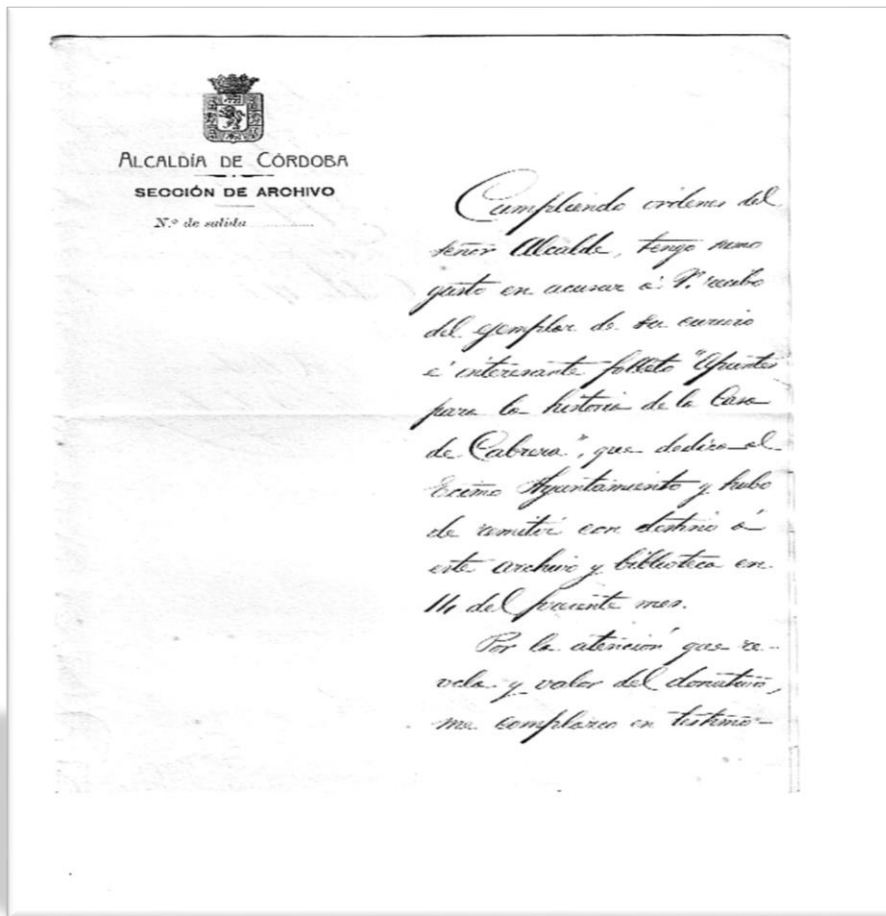 ALCALDÍA DE CÓRDOBA
SECCIÓN DE ARCHIVO
N.º de salida
Cumpliendo ordenes del
señor Alcalde, tengo sumo
gusto en acusar á V. recibo
del ejemplar de su curioso
é interesante folleto "Apuntes
para la historia de la Casa
de Cabrera", que dedica al
Excmo Ayuntamiento y hubo
de remitir con destino á
este archivo y biblioteca en
14 del presente mes.
Por la atención que re-
vela y valor del donativo,
me complazco en testimo-